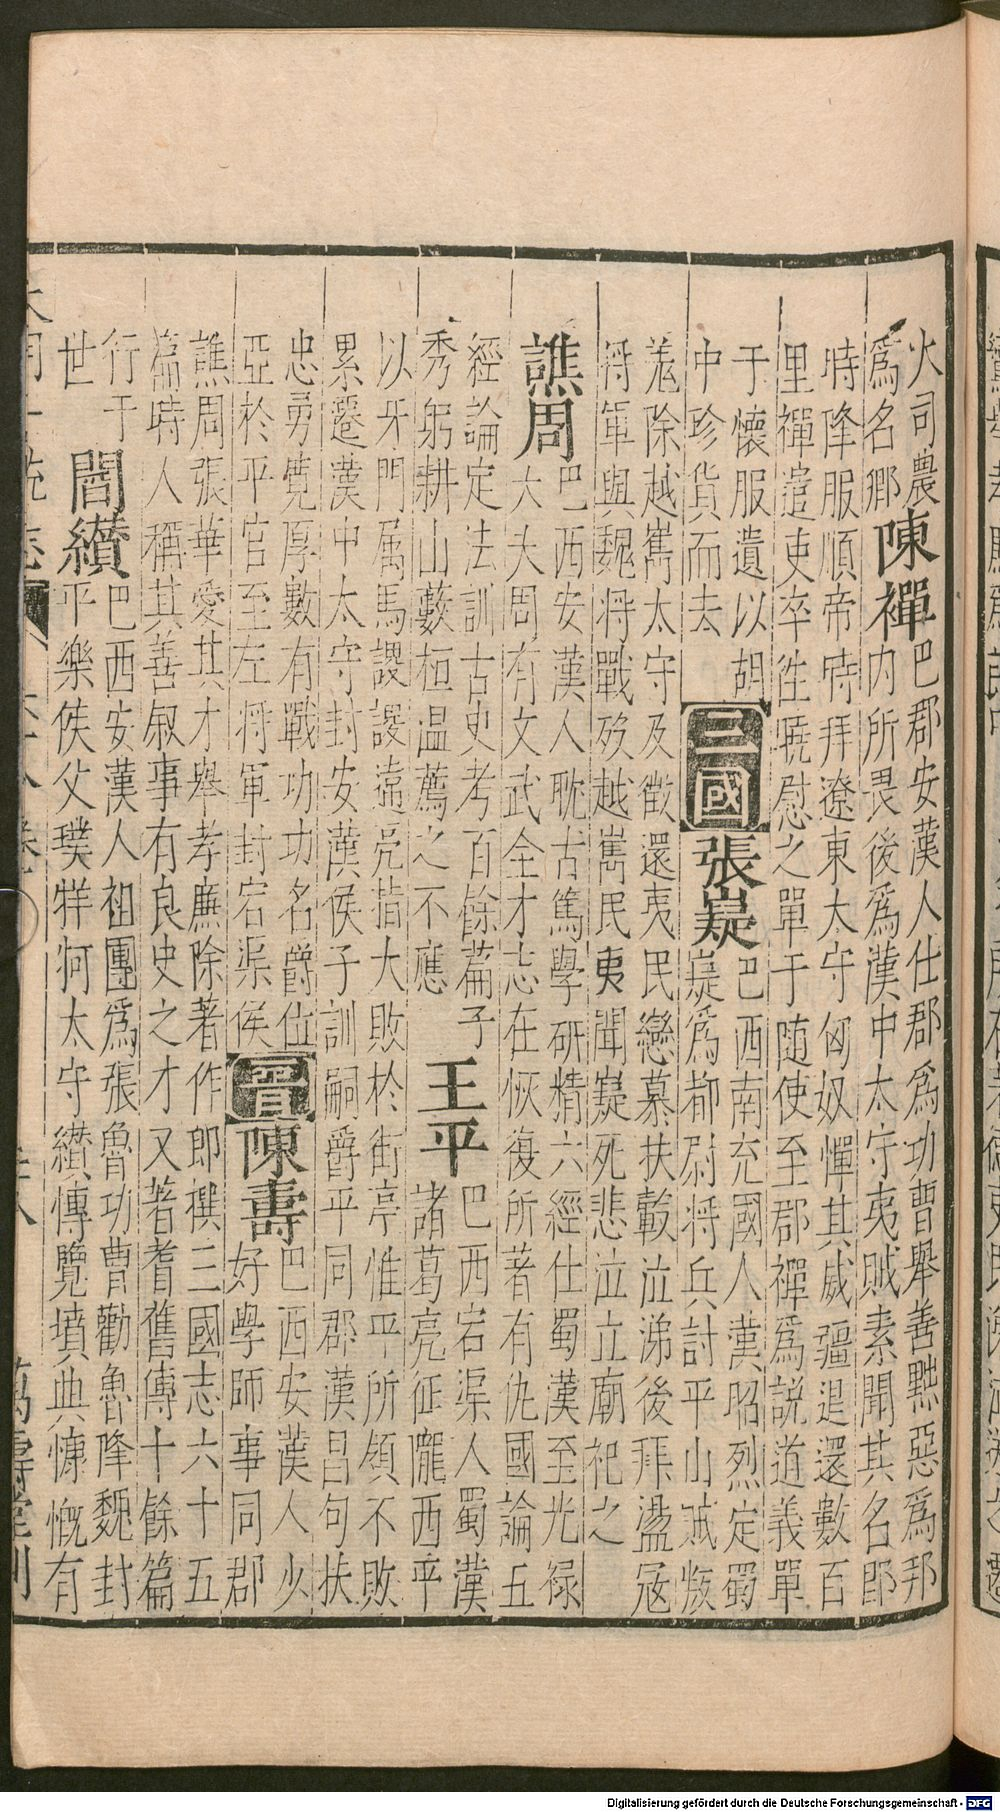 大司農
為名卿
陳禪
巴郡安漢人仕郡為功曹舉善黜惡為邦
内所畏後為漢中太守夷賊素聞其名即
時降服順帝時拜遼東太守匈奴憚其威彊退還數百
里禪遣吏卒往曉慰之單于随使至郡禪為說道義單
于懷服遺以胡
中珍貨而去
三國
張嶷
巴西南充國人漢昭烈定蜀
嶷為都尉將兵討平山賊叛
羌除越嶲太守及徵還夷民戀慕扶轂泣涕後拜盪寇
將軍與魏將戰歿越嶲民夷聞嶷死悲泣立廟祀之
譙周
巴西安漢人耽古篤學研精六經仕蜀漢至光禄
大夫周有文武全才志在恢復所著有仇國論五
經論定法訓古史考百餘篇子
秀躬耕山藪桓温薦之不應
王平
巴西宕渠人蜀漢
諸葛亮征隴西平
以牙門属馬謖謖違亮指大敗於街亭惟平所領不敗
累遷漢中太守封安漢侯子訓嗣爵平同郡漢昌句扶
忠勇寬厚數有戰功功名爵位
亞於平官至左將軍封宕渠侯
晉
陳壽
巴西安漢人少
好學師事同郡
譙周張華愛其才舉孝廉除著作郎撰三國志六十五
篇時人稱其善叙事有良史之才又著耆舊傳十餘篇
行于
世
閻纘
巴西安漢人祖圃為張魯功曹勸魯降魏封
平樂侯父璞牂牁太守纘慱覽墳典慷慨有
大明一統志
萬壽堂刊
Digitalisierung gefördert durch die Deutsche Forschungsgemeinschaft - DFG